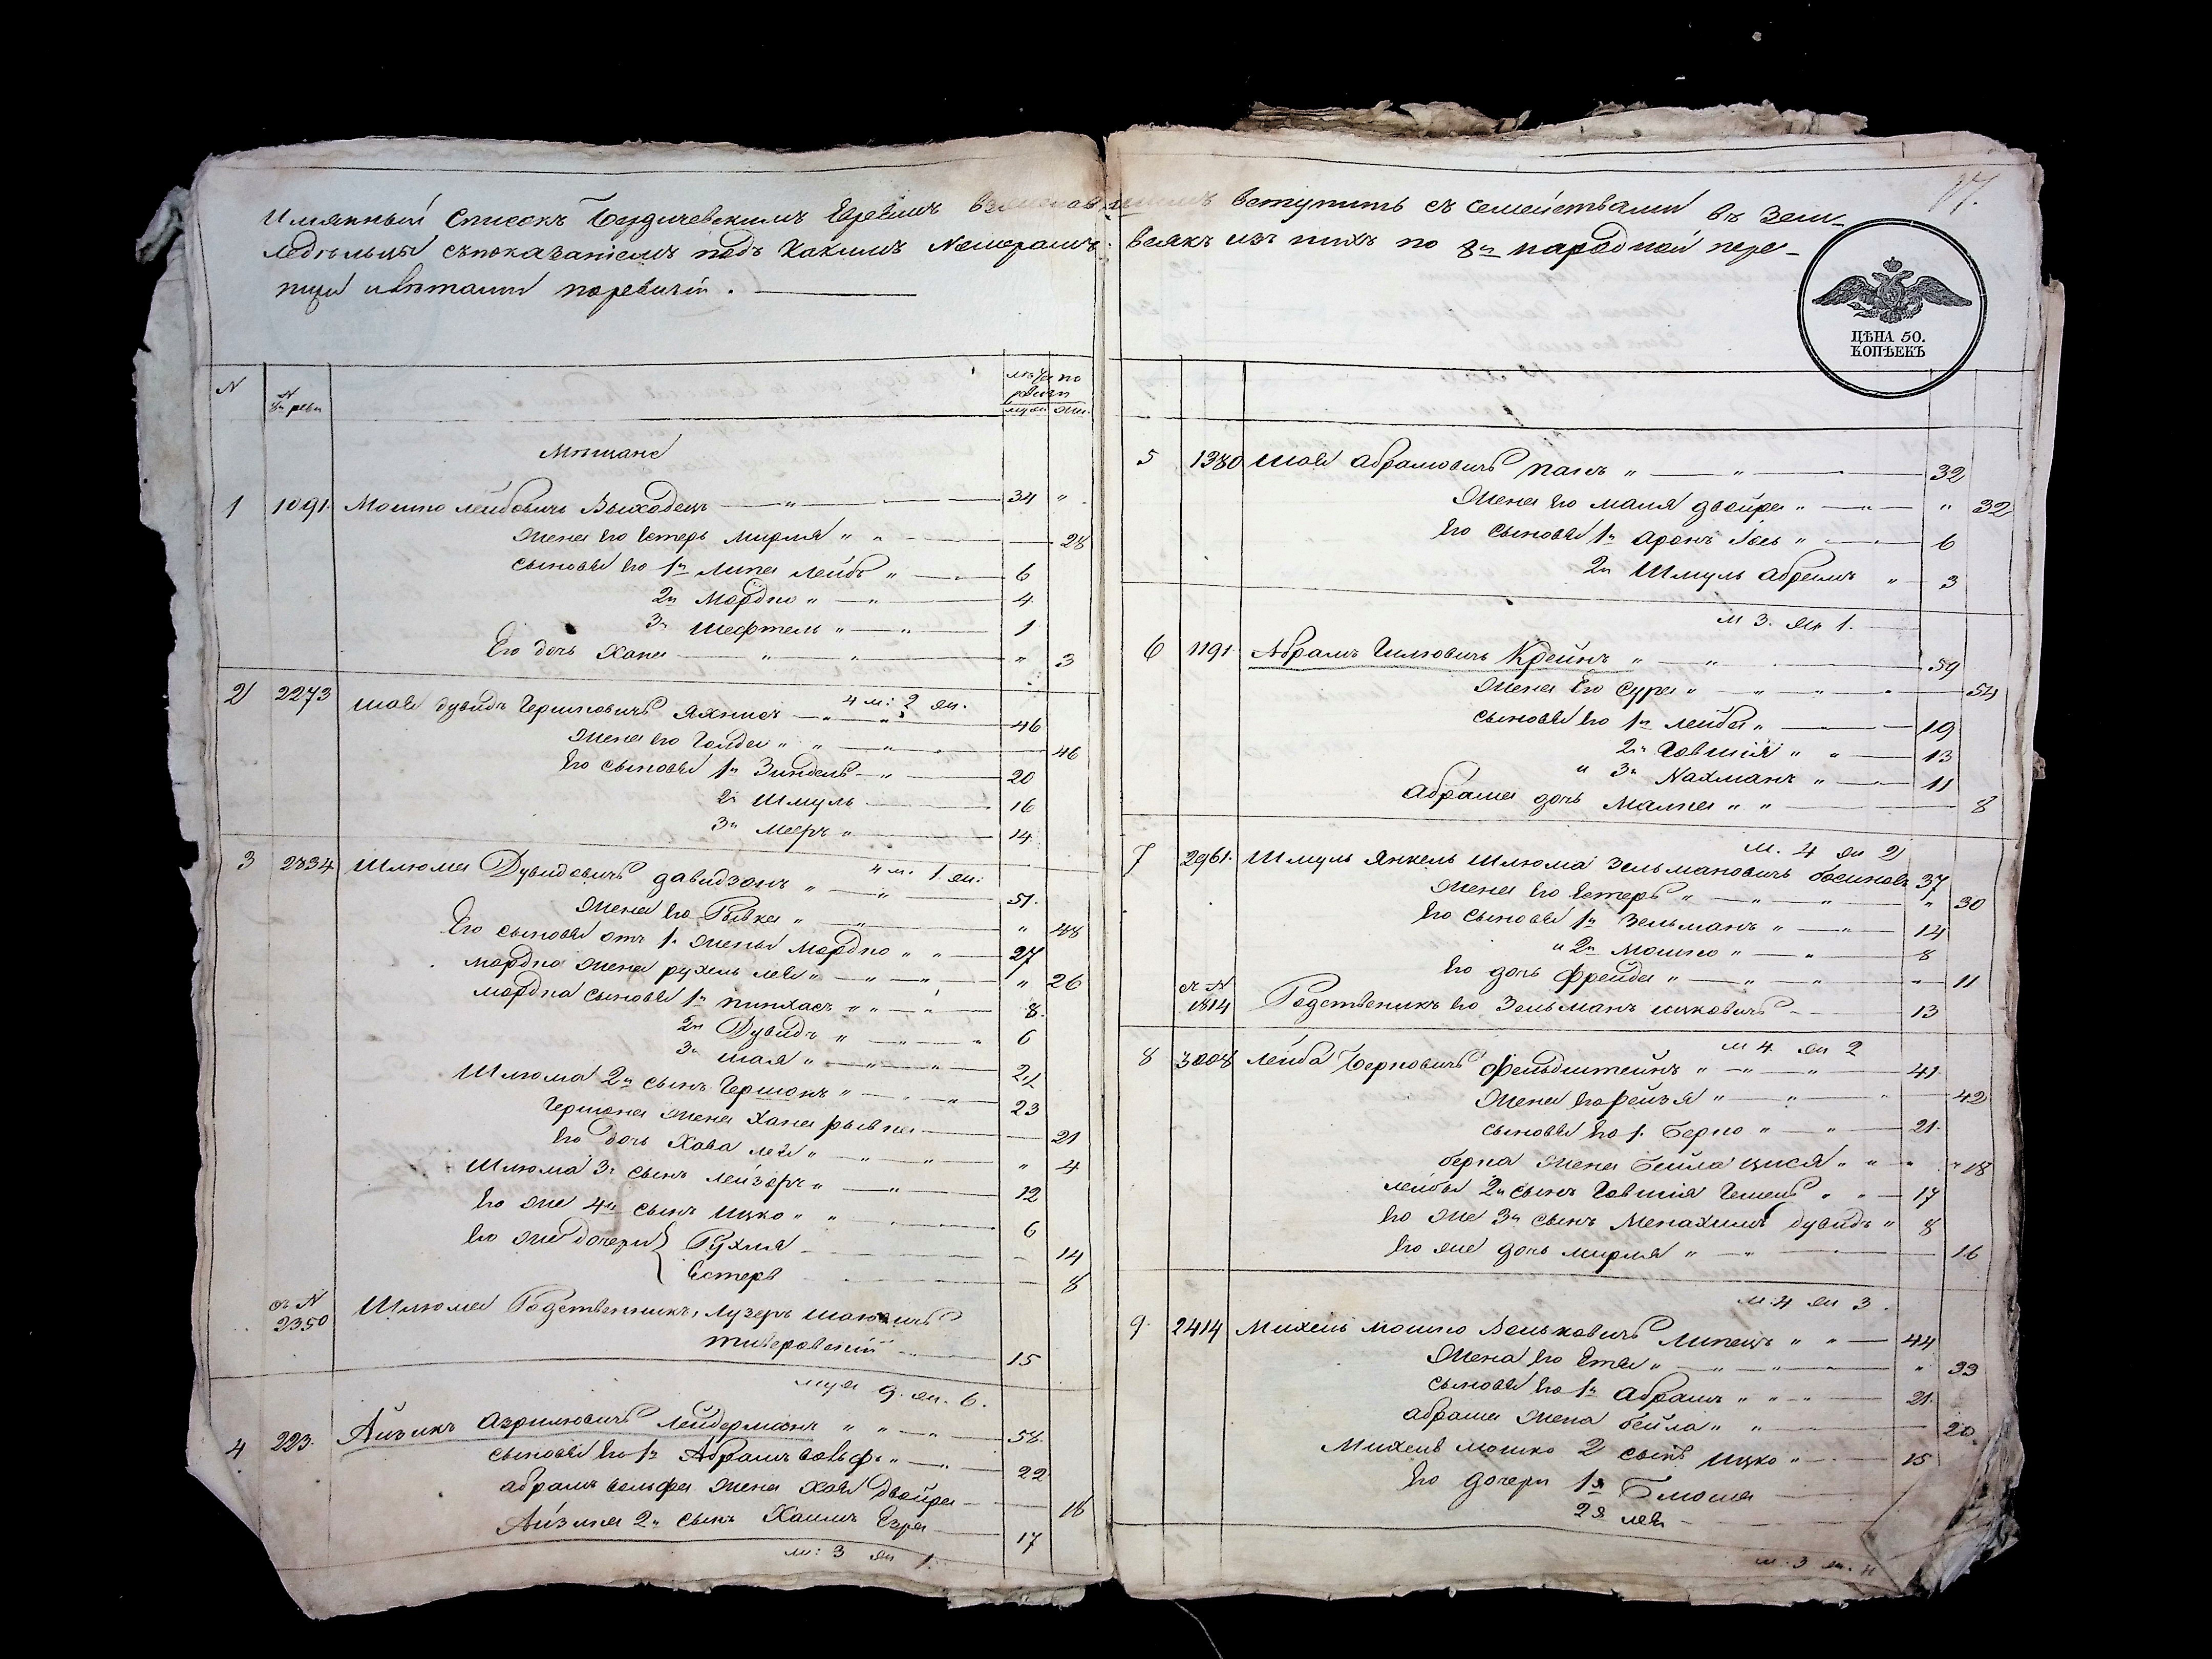 17.
Имянный Списокъ Бердичевскимъ Евреямъ взъ вступить съ семействами въ Зем-
ледельцы съ показаніемъ подъ какимъ Nомеромъ всякъ изъ нихъ по 8й народной пере-
писи и летами поревизіи.
ЦѢНА 50.
КОПѢЕКЪ
N
N 8й реви
лета по ревизіи
муж жен.
Мещане
1 1091. Мошко Лейбовичъ Выходецъ 34 "
Жена его Естеръ Мирля " " 28
Сыновья его 1й Липа Лейбъ " 6
2й Мордко " " 4
3й Шефтель " " 1
Его дочь Хана " " " 3
4 м: 2 жн.
2 2273 Шая Дувидъ Гершковичъ Яхнисъ 46
Жена его Голда " " 46
Его сыновья 1й Зиндель 20
2й Шмуль 16
3й Мееръ " 14
4 м: 1. жн:
3 2834 Шлюма Дувидовичъ Давидзонъ " 51.
Жена его Рывка " " 48
Его сыновья отъ 1й жены Мордко " " 27
Мордка жена Рухель Лея " " 26
Мордка сыновья 1й Пинхасъ " " 8.
2й Дувидъ " 6
3й Шая " 2 1/2
Шлюма 2й сынъ Гершонъ " 23
Гершона жена Хана Рывка 21
Его дочь Хава Лея " " 4
Шлюма 3й сынъ Лейзеръ " 12
Его же 4й сынъ Ицко " " 6
Его же дочери Рухля 14
Естеръ 8
съ N
2350 Шлюма Родственникъ, Лузеръ
15
муж 9. жн. 6.
4 223. Айзикъ Азрилювичъ Лейдерманъ " " 58.
Сыновья его 1й Абрамъ Вольфъ " 22
Абрамъ Вольфа жена Хая Двойра 18
Айзика 2й сынъ Хаимъ Езра 17
м: 3 жн 1.
5 1380 Шая Абрамовичъ Пакъ " " 32
Жена его Маля Двойра " " 32
Его сыновья 1й Аронъ Іось " 6
2й Шмуль Абрамъ " 3
м 3. жн 1.
6 1191 Абрамъ Гилювичъ Крейнъ " " 59
Жена его Сура " " " 54
Сыновья его 1й Лейба " 19
2й Говшія " " 13
" 3й Nахманъ " 11
Абрама дочь Малка " " 8
м. 4 жн 2
7 2961. Шмуль Янкель Шлюма Зельмановичъ 37
Жена его Естеръ " " 30
Его сыновья 1й Зельманъ " 14
" 2й Мошко " " 8
Его дочь Фрейда " " 11
съ N
1814 Родственикъ его Зельманъ Ицковичъ 13
м 4. жн 2
8 3008 Лейба Берковичъ Фельдштейнъ " " 41
Жена его Рейзя " " 42
Сыновья его 1. Берко " " 21.
Берка жена Бейла Цися " " " 18
Лейбы 2й сынъ Говшія " " 17
Его же 3й сынъ Менахимъ Дувидъ " 8
Его же дочь Мирля " " 16
м: 4 жн 3.
9. 2414 Михель Мошко Вольковичъ Липецъ " " 44
Жена его Етя " " " 33
Сыновья его 1й Абрамъ " " " 21.
Абрама жена Бейла " " 20.
Михель Мошко 2 сынъ Ицко " 15
Его дочери 1я Блюма
2я Лея
м. 3 жн. 4